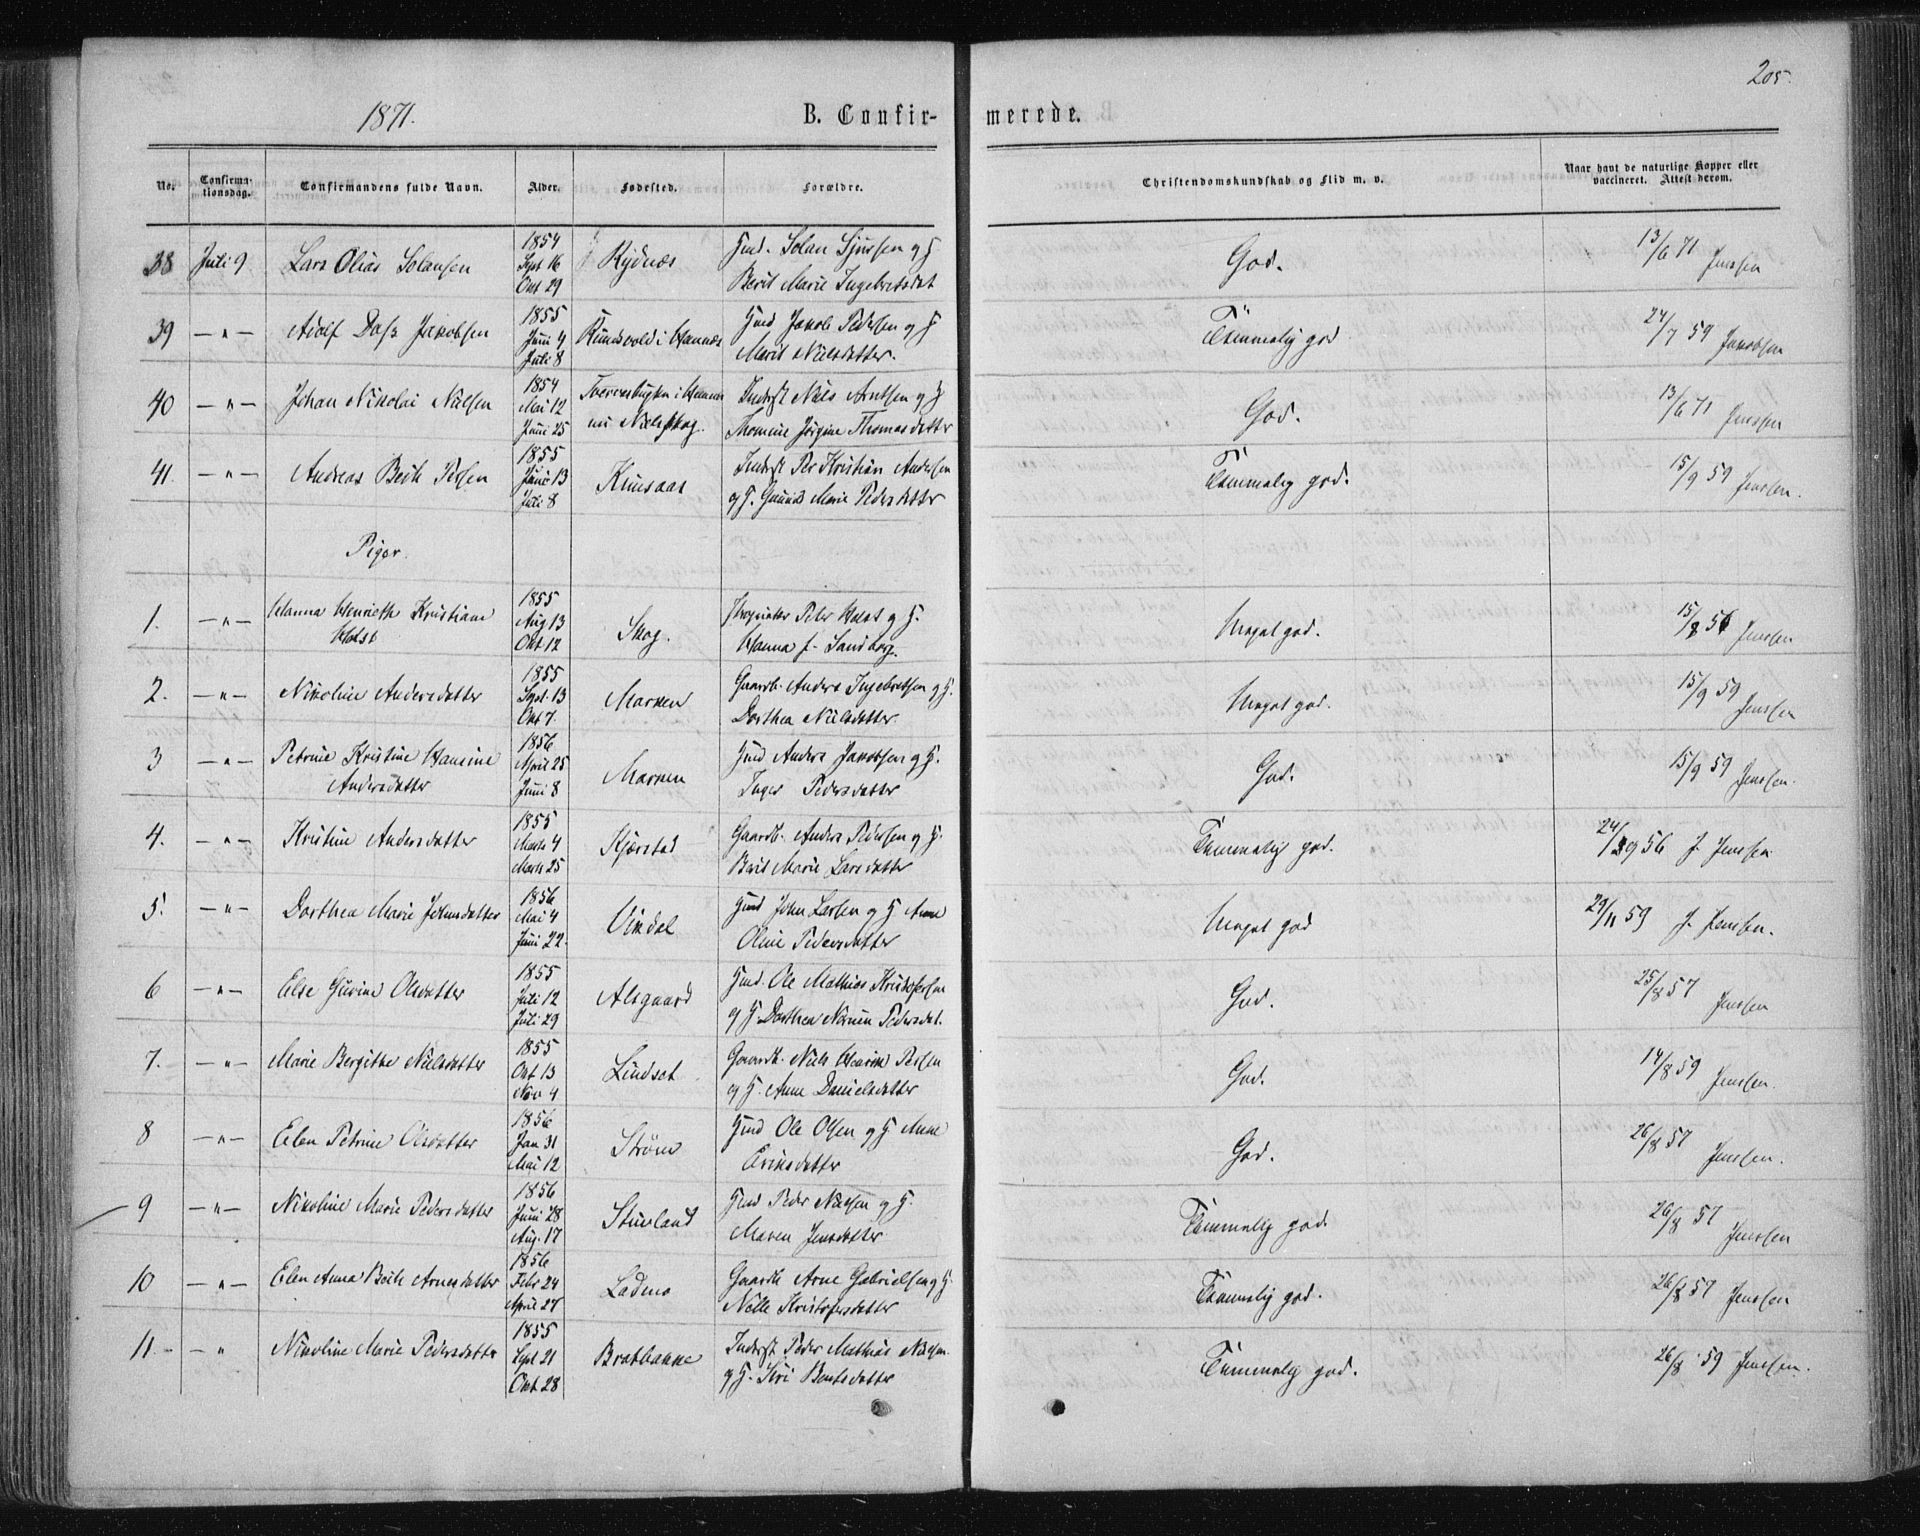 205.
1871.
B. Confirmerede.
No. Confirmationsdag. Confirmandens fulde Navn. Alder. Fødested. Forældre. Christendomskundskab og Flid m. v. Naar havt de naturlige Kopper eller vaccineret. Attest derom.
38 Juli 9 Lars Olias Solansen 1854 Sept 16 Okt 29 Rydnæs Hmd. Solan Sjursen og H Berit Marie Ingebretsdat God. 13/6 71 Jenssen
39 — " — Adolf Dass Jakobsen 1855 Juni 4 Juli 8 i Hannæs Hmd Jakob Pedersen og H Marit Nielsdatter. Temmelig god 24/7 59 Jakobsen
40 — " — Johan Nikolai Nielsen 1854 Mai 12 Juni 25 Inderst Niels Arntsen og H Thomine Jørgine Thomasdatter God. 13/6 71 Jenssen
41. — " — Andreas Beck Persen 1855 Juni 13 Juli 8 Inderst Per Kristian Andersen og H. Marie Pedersdatter Temmelig god. 15/9 59 Jenssen.
Piger.
1. — " — Hanna Henrieth Kristiane Holst 1855 Aug 13 Okt 12 Skog. Proprietær Peter Holst og H. Hanna f. Sandberg. Meget god. 15/8 56 Jenssen
2. — " — Nikoline Andersdatter 1855 Sept. 13 Okt 7. Marken Gaardb. Anders Ingebretsen og H. Dorthea Nielsdatter. Meget god. 15/9 59 Jenssen
3 — " — Petrine Kristine Hansine Andersdatter 1856 April 25 Juni 8 Marken Hmd Anders Jakobsen og H. Inger Pedersdatter God. 15/9 59 Jenssen.
4. — " — Kristine Andersdatter 1855 Marts 4 Marts 25 Kjærstad Gaardb. Anders Pedersen og H. Berit Marie Larsdatter Temmelig god. 24/9 56 J. Jenssen
5. — " — Dorthea Marie Johnsdatter 1856 Mai 4 Juni 22. Vikdal Hmd John Larsen og H Anne Oline Pedersdatter Meget god 29/11 59 J. Jenssen.
6 — " — Else Gurine Olsdatter 1855 Juli 12 Juli 29 Alsgaard Hmd. Ole Mathias Kristofersen og H. Dorthea Pedersdat. God. 25/8 57 Jenssen
7. — " — Marie Bergitte Nielsdatter 1855 Okt 13 Nov 4 Lindset Gaardb. Niels Henrik Persen og H. Anne Danielsdatter God. 14/8 59 Jenssen.
8 — " — Elen Petrine Olsdatter 1856 Jan 31 Mai 12 Strøm Hmd Ole Olsen og H Anne Eriksdatter God. 26/8 57 Jenssen.
9 — " — Nikoline Marie Pedersdatter 1856 Juni 28 Aug. 17 Stuvland Hmd Peder Nielsen og H. Maren Jensdatter Temmelig god. 26/8 57 Jenssen
10 — " — Elen Anna Beck Arnesdatter 1856 Febr 24 April 27 Ladmo Gaardb Arne Gabrielsen og H. Nelle Kristofersdatter Temmelig god. 26/8 57 Jenssen
11. - " Nikoline Marie Pedersdatter 1855 Sept 21 Okt 28 Bratbakke Inderst Peder Mathias Nielsen. og H. Siri Bentsdatter Temmelig god. 26/8 59 Jenssen.